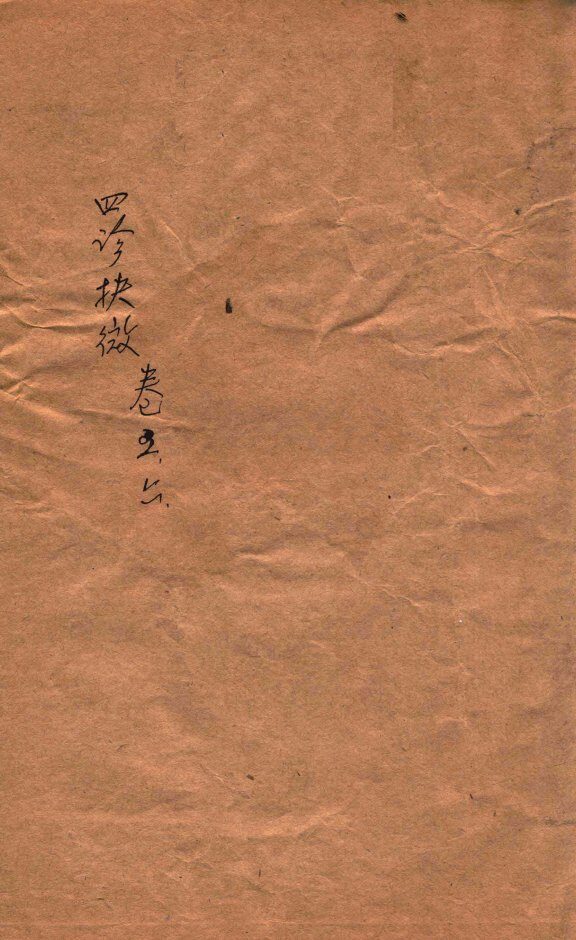 四诊抉微
卷五.六.